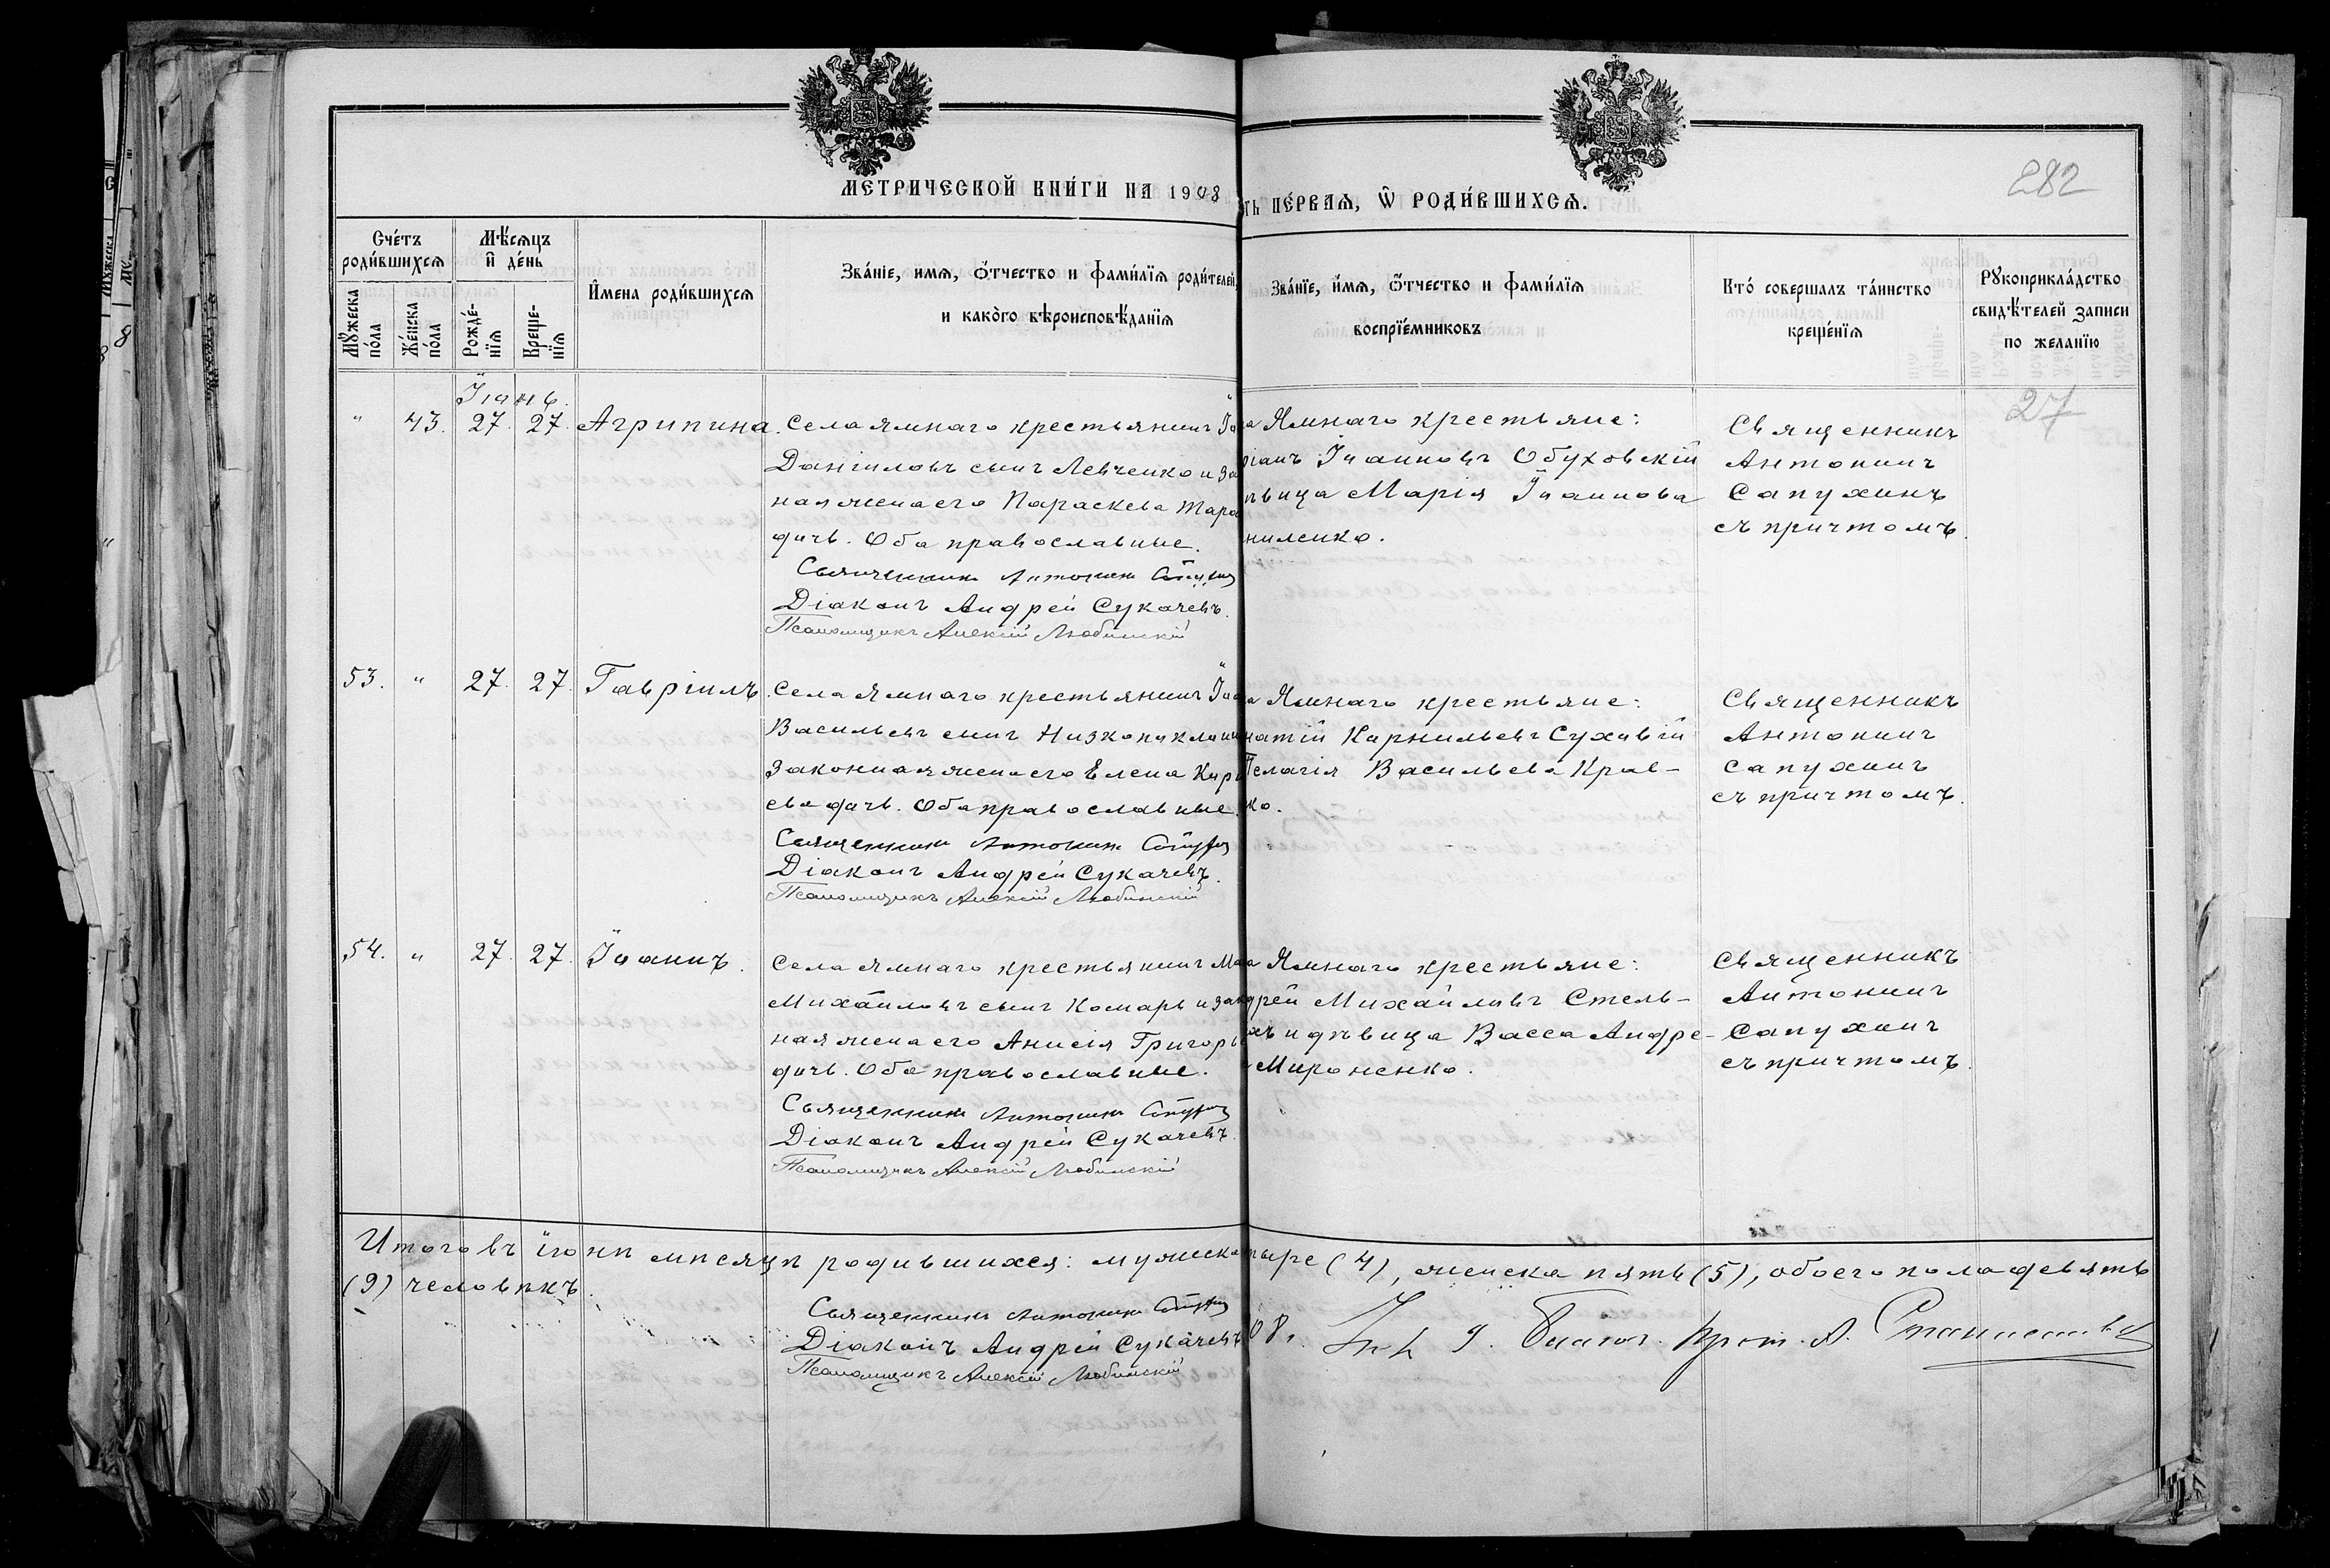 МЕТРИЧЕСКОЙ КНИ́ГИ НА 1908
ть ПЕ́РВАѦ, Ѿ РОДИ́ВШИХСѦ.
282
Сче́тъ роди́вшихсѧ
Мѣ́сѧцъ и҆ де́нь
Мꙋ́жеска по́ла
Же́нска по́ла
Рожде́-нїѧ
Креще-нїѧ
И҆мена роди́вшихсѧ
Зва́нїе, имѧ, ѻ҆́тчество и фами́лїѧ роди́телей,
и како́го вѣроисповѣ́данїѧ
Зва́нїе, и́мѧ, ѻ҆́тчество и фами́лїѧ
воспрїе́мниковъ
Кто́ совершалъ та́инство
креще́нїѧ
Рꙋкоприкла́дство
свидѣ́телей записи
по желанїю
Іюнь.
" 43. 27. 27. Агрипина.
Села Ямнаго крестьянинъ
Даніиловъ сынъ Левченко и за
ная жена его Параскева Тара
дочь. Оба православные.
Священникъ Антонинъ
Діаконъ Андрей Сукачевъ.
Псаломщикъ Алексій Любинскій
а Ямнаго крестьяне:
ріанъ Іоанновъ Обуховскій
ѣвица Марія Іоаннова
ниленко.
Священникъ
Антонинъ
Сапухинъ
съ причтомъ.
27
53. " 27. 27. Гавріилъ.
Села Ямнаго крестьянинъ
Васильевъ сынъ Низкопоклонн
законная жена его Елена Кири
ева дочь. Оба православные.
Священникъ Антонинъ
Діаконъ Андрей Сукачевъ.
Псаломщикъ Алексій Любинскій
а Ямнаго крестьяне:
натій Корнильевъ Суховій
Пелагія Васильева Крав-
ко.
Священникъ
Антонинъ
Сапухинъ
съ причтомъ.
54. " 27. 27. Іоаннъ.
Села Ямнаго крестьянинъ Ма
Михаиловъ сынъ Комарь и зак
ная жена его Анисія Григорье
дочь. Оба православные.
Священникъ Антонинъ
Діаконъ Андрей Сукачевъ.
Псаломщикъ Алексій Любинскій
а Ямнаго крестьяне:
дрей Михаиловъ Стель-
хъ и дѣвица Васса Андре-
Мироненко.
Священникъ
Антонинъ
Сапухинъ
съ причтомъ.
Итого въ іюнѣ мѣсяцѣ родившихся: мужеска
тыре (4), женска пять (5), обоего пола девять
(9) человѣкъ.
Священникъ Антонинъ
Діаконъ Андрей Сукачевъ
Псаломщикъ Алексій Любинскій
08. Благоч. Прот. А.